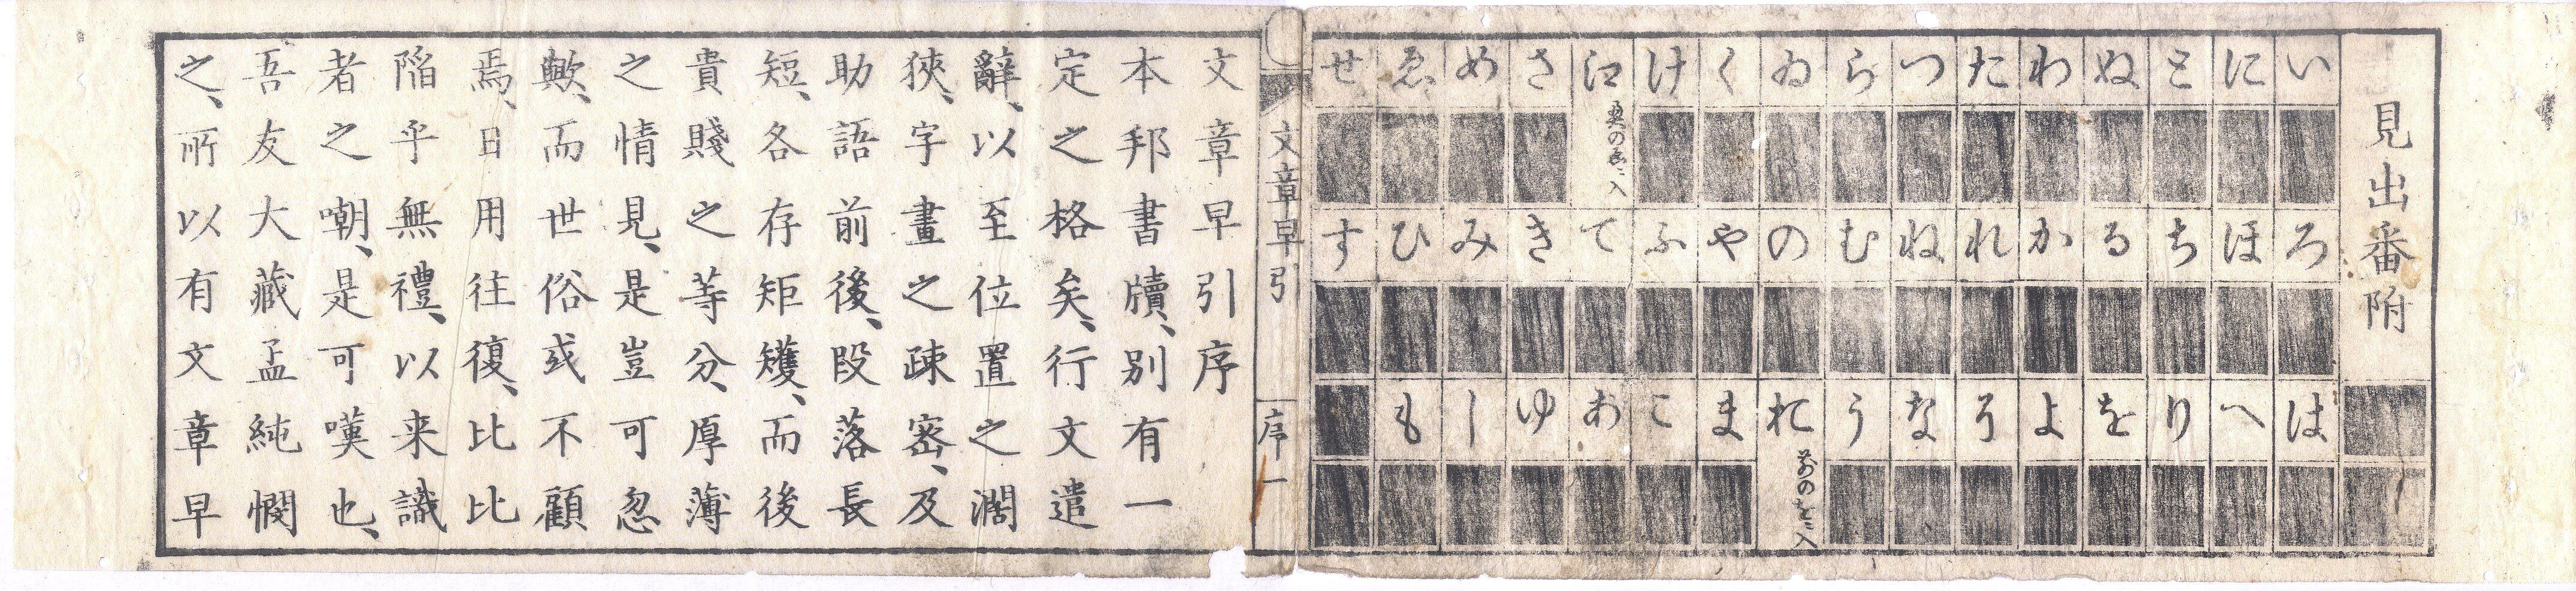 見出番附
いろは
にほへ
とちり
ぬるを
わかよ
たれそ
つねな
らむう
ゐのお
前のをニ入
くやま
けふこ
江てあ
奥のゑニ入
さきゆ
めみし
ゑひも
せす
文章早引
序一
文章早引序
本邦書牘、別有一
定之格矣、行文遣
辭、以至位置之濶
狹、字畫之疎密、及
助語前後、段落長
短、各存矩矱、而後
貴賤之等分、厚薄
之情見、是豈可忽
歟、而世俗或不顧
焉、日用往復、比比
陷乎無禮、以来識
者之嘲、是可嘆也、
吾友大藏孟純憫
之、所以有文章早